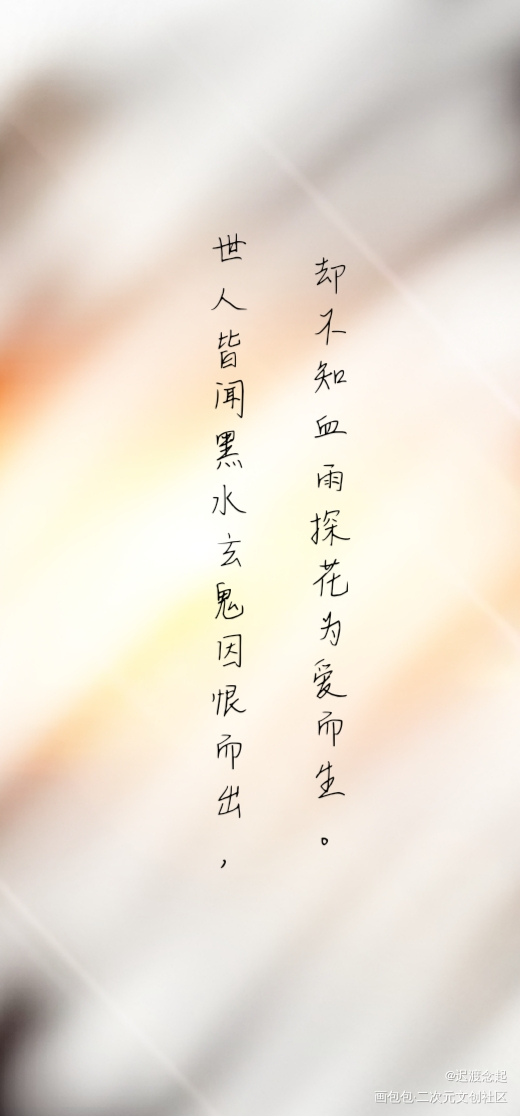 世人皆闻黑水玄鬼因恨而出，
却不知血雨探花为爱而生。
@迟渡念起
画包包·二次元文创社区